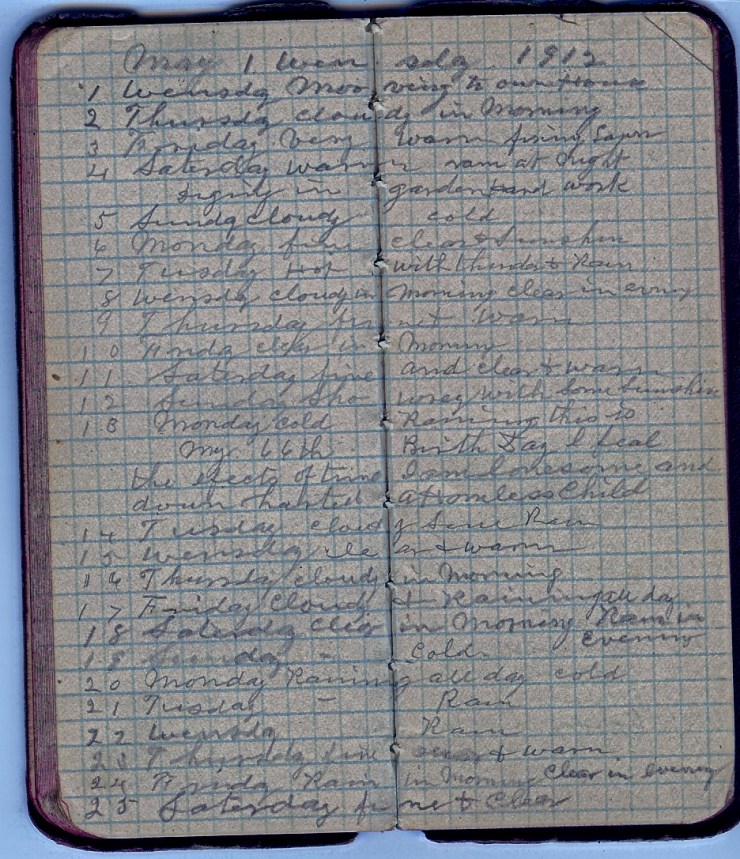 May 1 Wensdy 1912
1 Wensdy Mooving to own House
2 Thursdy cloudy in Morning
3 Friday Very Warm
4 Saterday warm rain at night
in garden and work
5 Sundy cloudy cold
6 Monday fine clear & Sunshin
7 Tusday Hot with thunder & Rain
8 Wensdy cloudy in Morning clear in evning
9 Thursday Warm
10 Fridy clear in Morning
11 Saturday fine and clear & warm
12 Sunday Showrey with Some Sunshin
13 Monday Cold Raining this is
My 66th Birth Day I feal
the efects of time I am lonesome and
down harted a Homless Child
14 Tusday cloudy Some Rain
15 Wensday clear & warm
16 Thursdy cloudy in Morning
17 Friday Cloudy & Raining all day
18 Saterday Clear in Morning Rain in
Evening
19 Sunday - Cold
20 Monday Raining all day cold
21 Tusday - Rain
22 Wensdy Rain
23 Thursday fine clear & warm
24 Friday Rain in Morning Clear in evening
25 Saterday fine & Clear